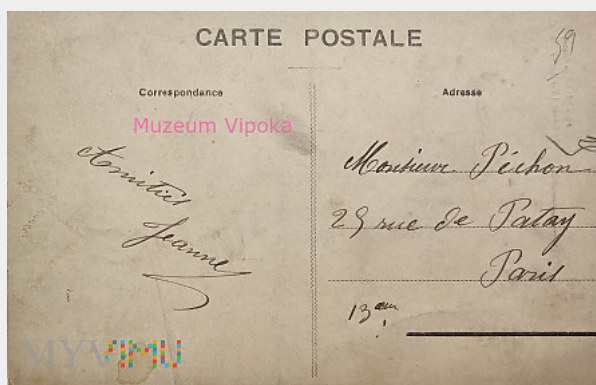 CARTE POSTALE
59
Correspondance
Adresse
Muzeum Vipoka
Amitiés
Jeanne
Monsieur Péchon
25 rue de Patay
Paris
13em
MYVIMU